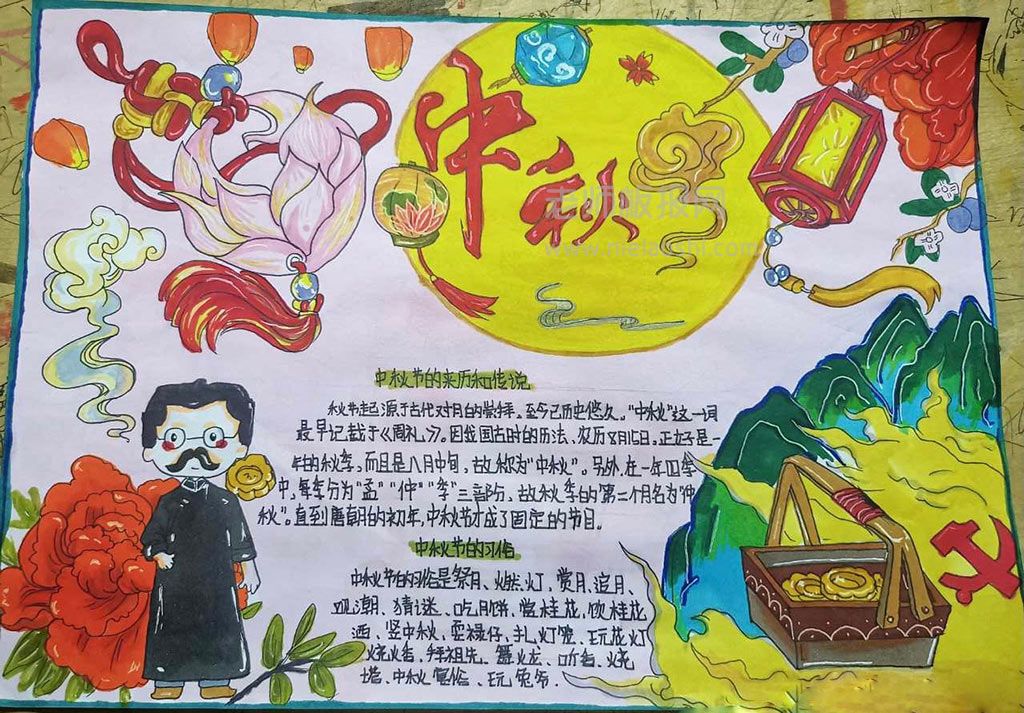 中秋
老师板报网
中秋节的来历和传说
秋节起源于古代对月的崇拜。至今已历史悠久。"中秋"这一词
最早记载于《周礼》。因我国古时的历法、农历8月15日。正好是一
年的秋季,而且是八月中旬,故称为"中秋"。另外,在一年四季
中,每季分为"孟""仲""季"三部分,故秋季的第二个月名为"仲
秋"。直到唐朝的初年,中秋节才成了固定的节日。
中秋节的习俗
中秋节的习俗是祭月、燃灯,赏月、追月、
观潮、猜谜、吃月饼,赏桂花,饮桂花
酒、竖中秋,耍禄仔,扎灯笼、玩花灯
烧火塔,拜祖先。舞火龙、听香、烧
塔、中秋宴俗、玩兔爷.